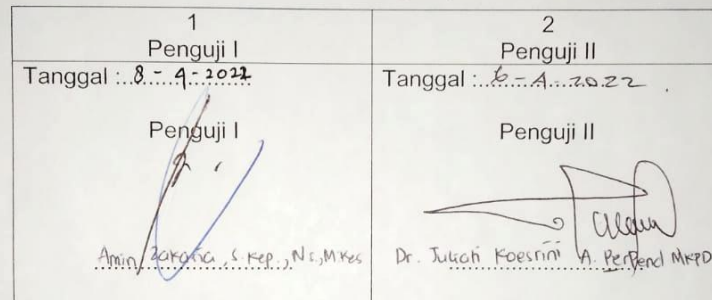 1
Penguji I
Tanggal : 8 - 4 - 2022
Penguji I
Amin Zakaria, S.Kep., Ns., M.Kes
2
Penguji II
Tanggal : 6 - 4 - 2022
Penguji II
Dr. Juliati Koesrini A. PerPend MKPD